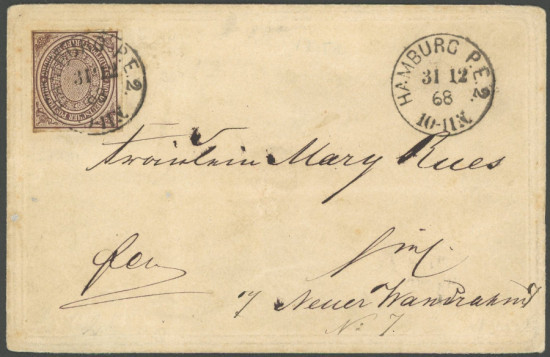 HAMBURG P.E.2.
31 12
68
10-11 N.
P.E.2.
31 12
Fräulein Mary Rues
fr
Neuer Wandrahm
No 7.